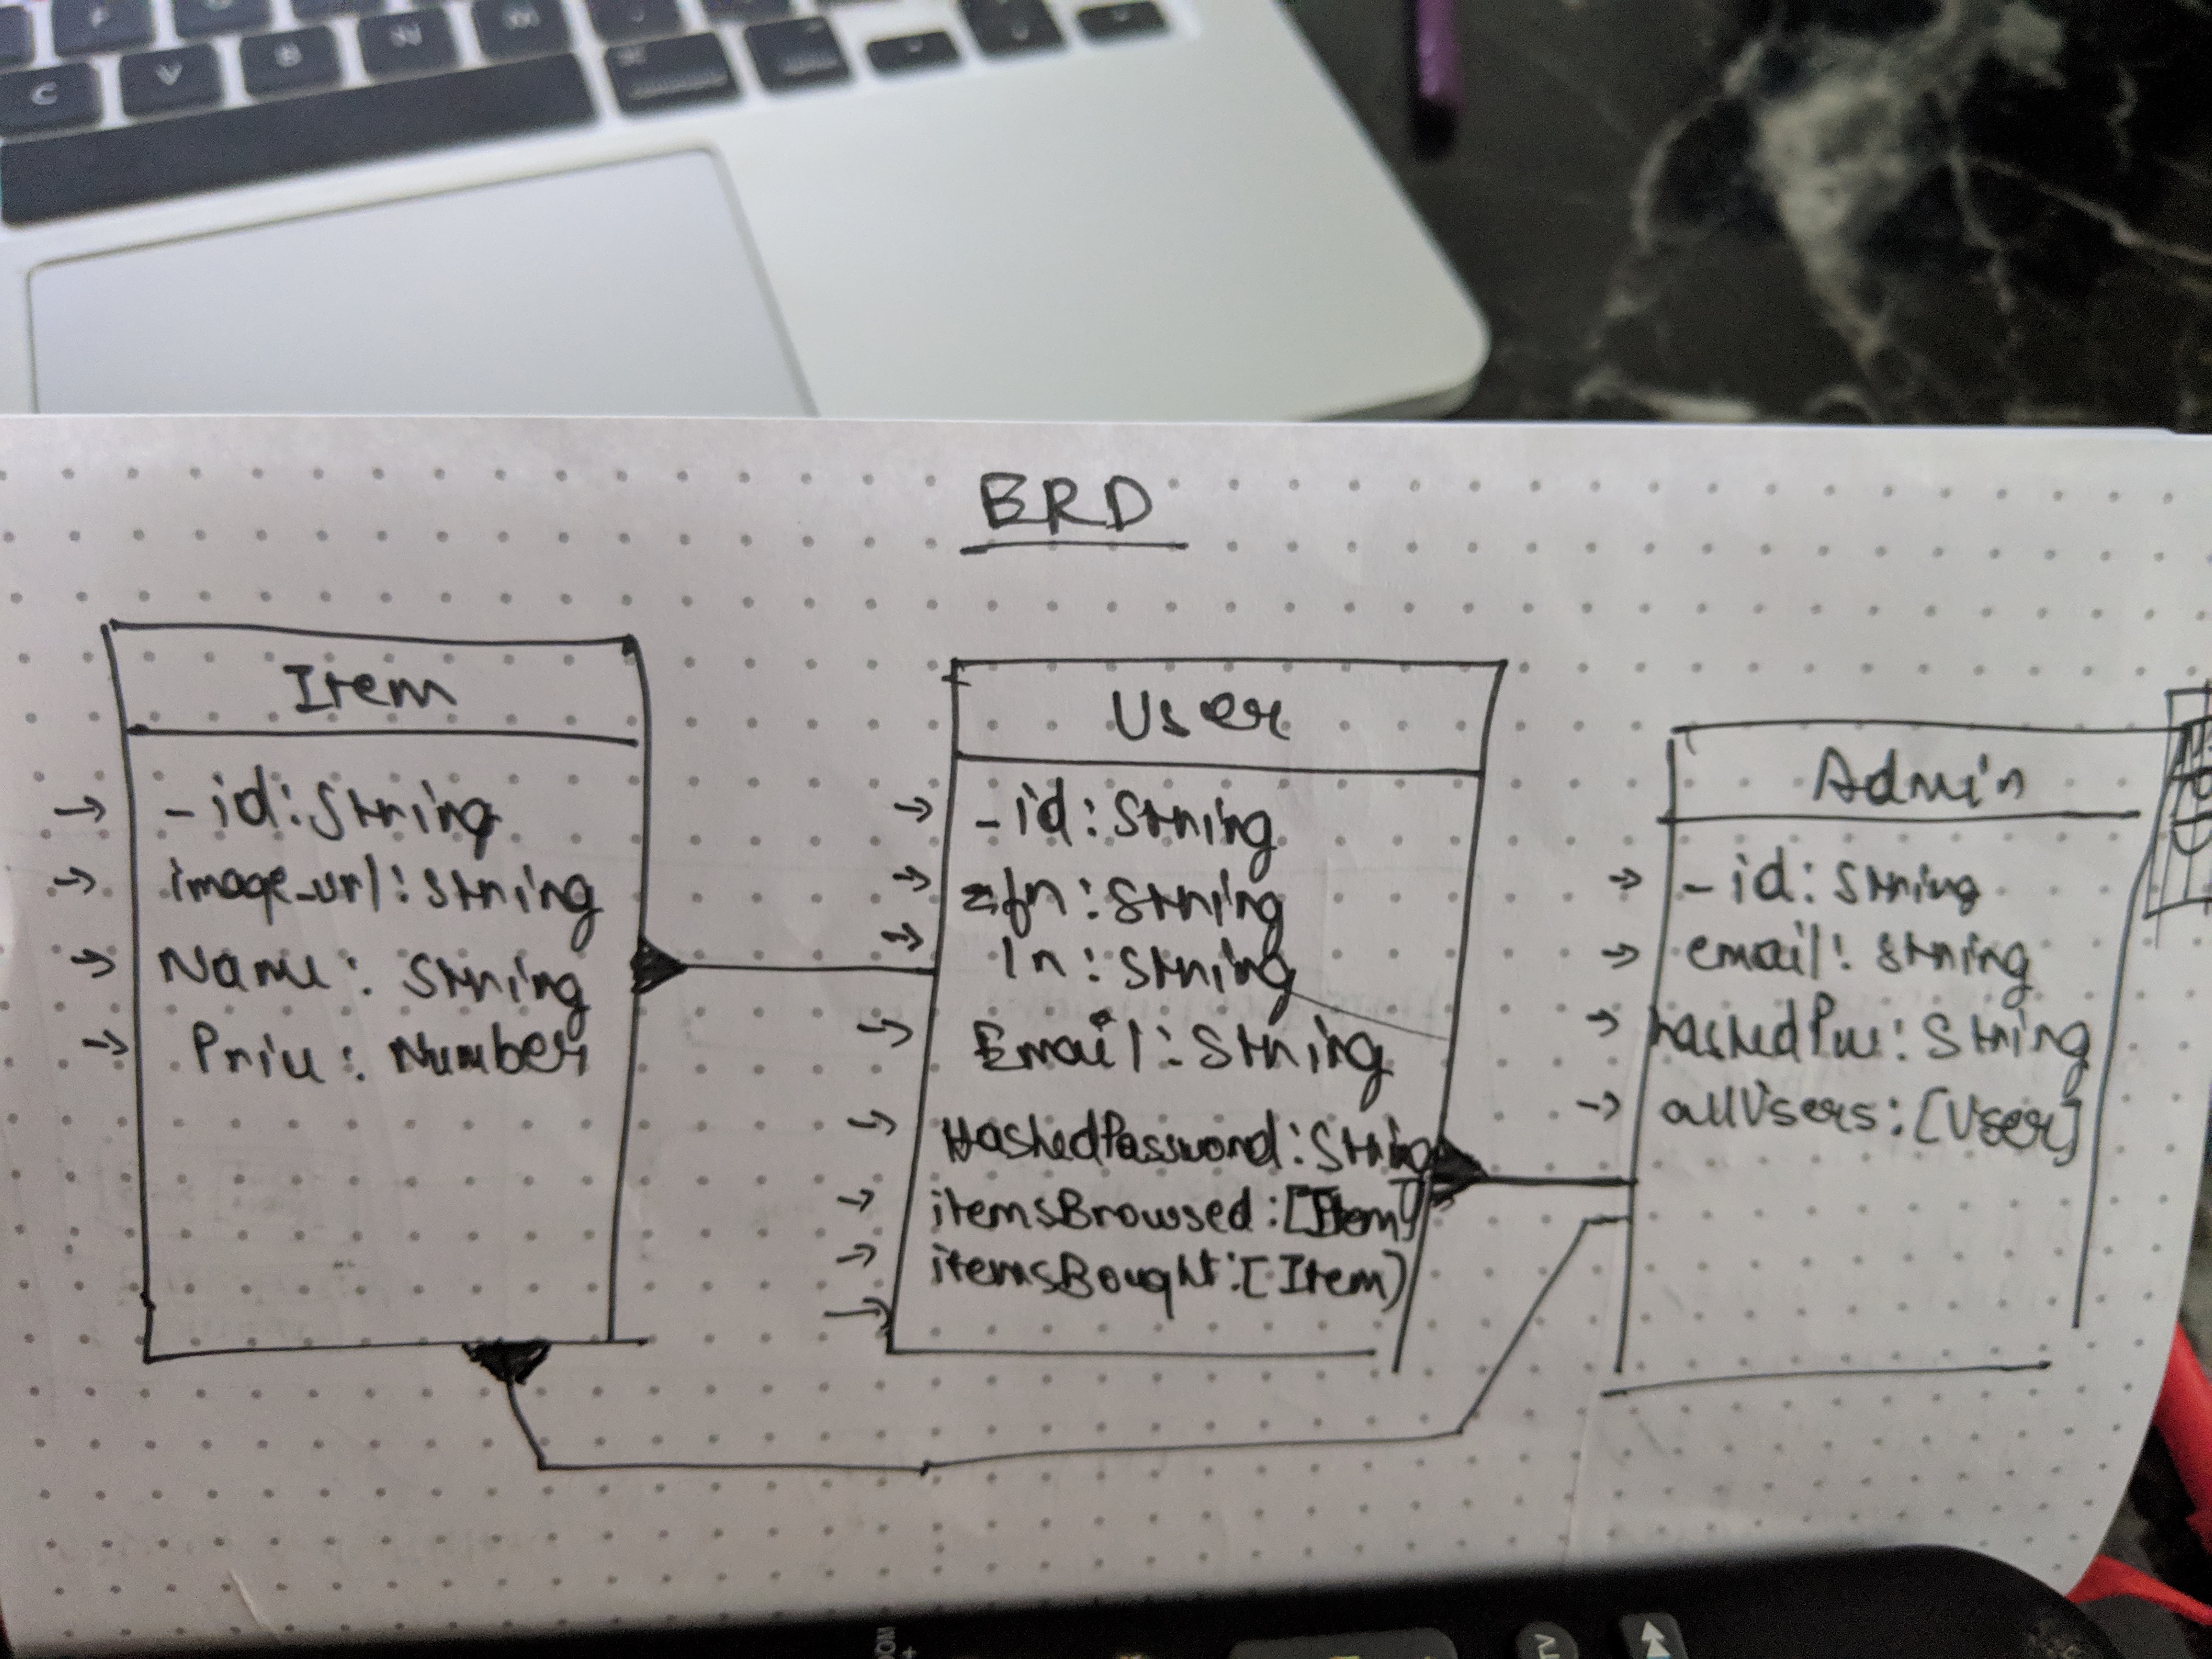 C V B N M
ERD
Item
_id: String
image_url: String
Name: String
Price: Number
User
_id: String
fn: String
ln: String
Email: String
HashedPassword: String
itemsBrowsed: [Item]
itemsBought: [Item]
Admin
_id: String
email: String
hashedPw: String
allUsers: [User]
OOM +
TV